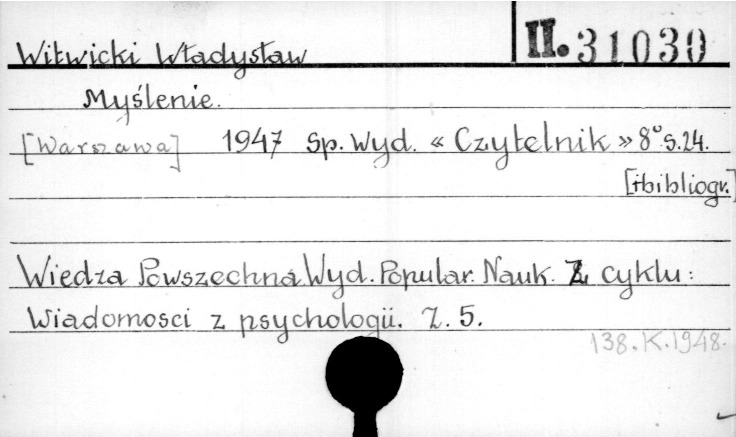 Witwicki Władysław II. 31030
Myślenie.
[Warszawa] 1947 Sp. Wyd. « Czytelnik » 8° s. 24.
[+bibliogr.]
Wiedza Powszechna. Wyd. Popular. Nauk. Z cyklu:
Wiadomosci z psychologii. Z. 5.
138.K.1948.